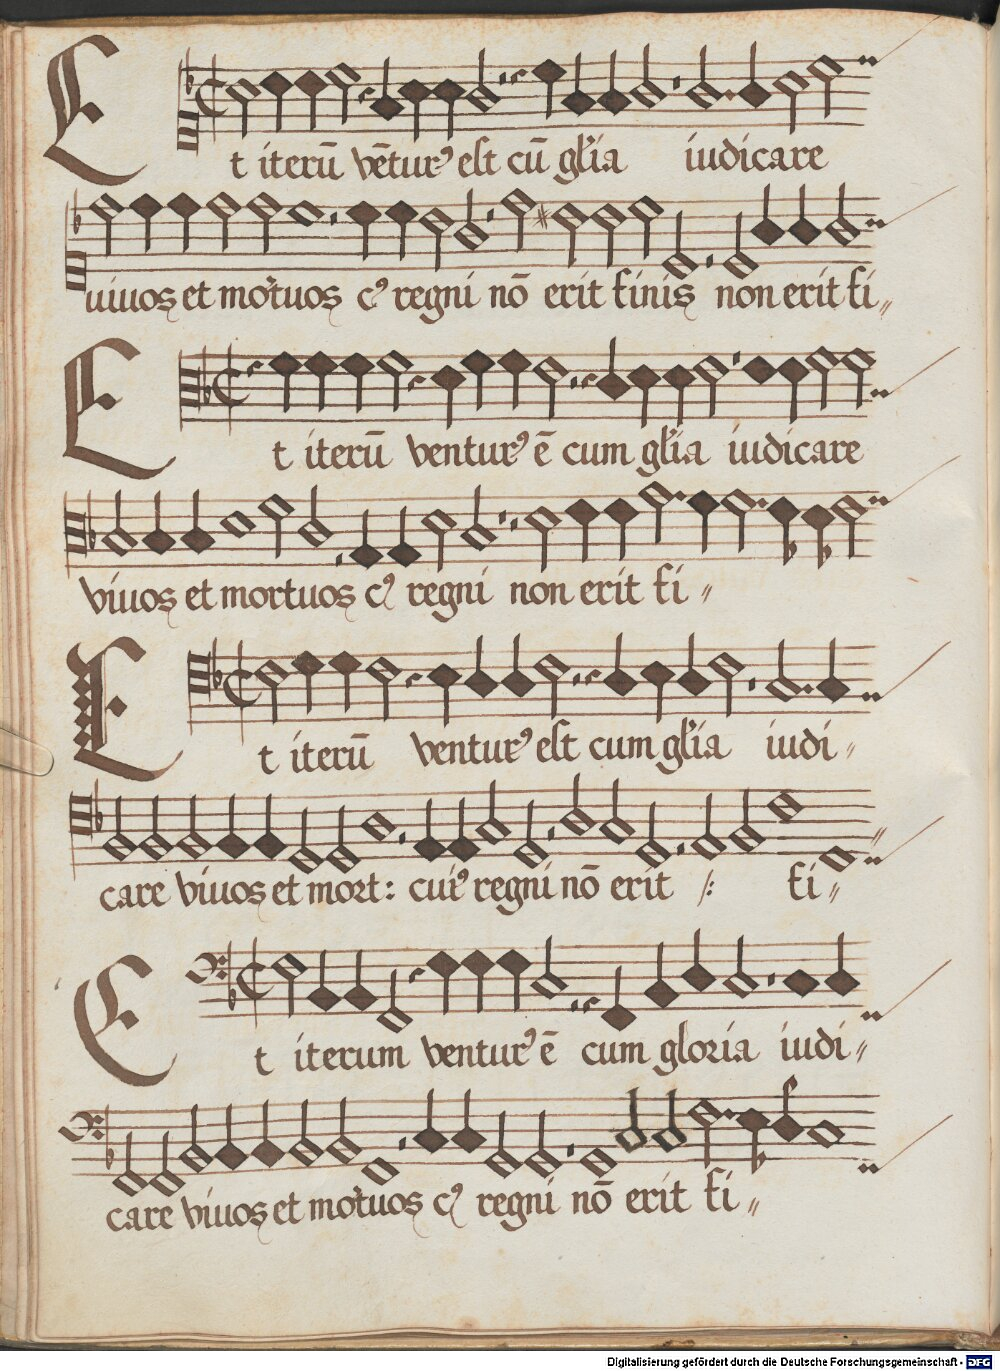 Et iterū vētur⁹ est cū gl'ia iudicare
uiuos et mortuos c⁹ regni nō erit finis non erit fi〃
Et iterū ventur⁹ ē cum gl'ia iudicare
viuos et mortuos c⁹ regni non erit fi〃
Et iterū ventur⁹ est cum gl'ia iudi〃
care viuos et mort: cui⁹ regni nō erit ⁒ fi〃
Et iterum ventur⁹ ē cum gloria iudi〃
care viuos et mortuos c⁹ regni nō erit fi〃
Digitalisierung gefördert durch die Deutsche Forschungsgemeinschaft - DFG